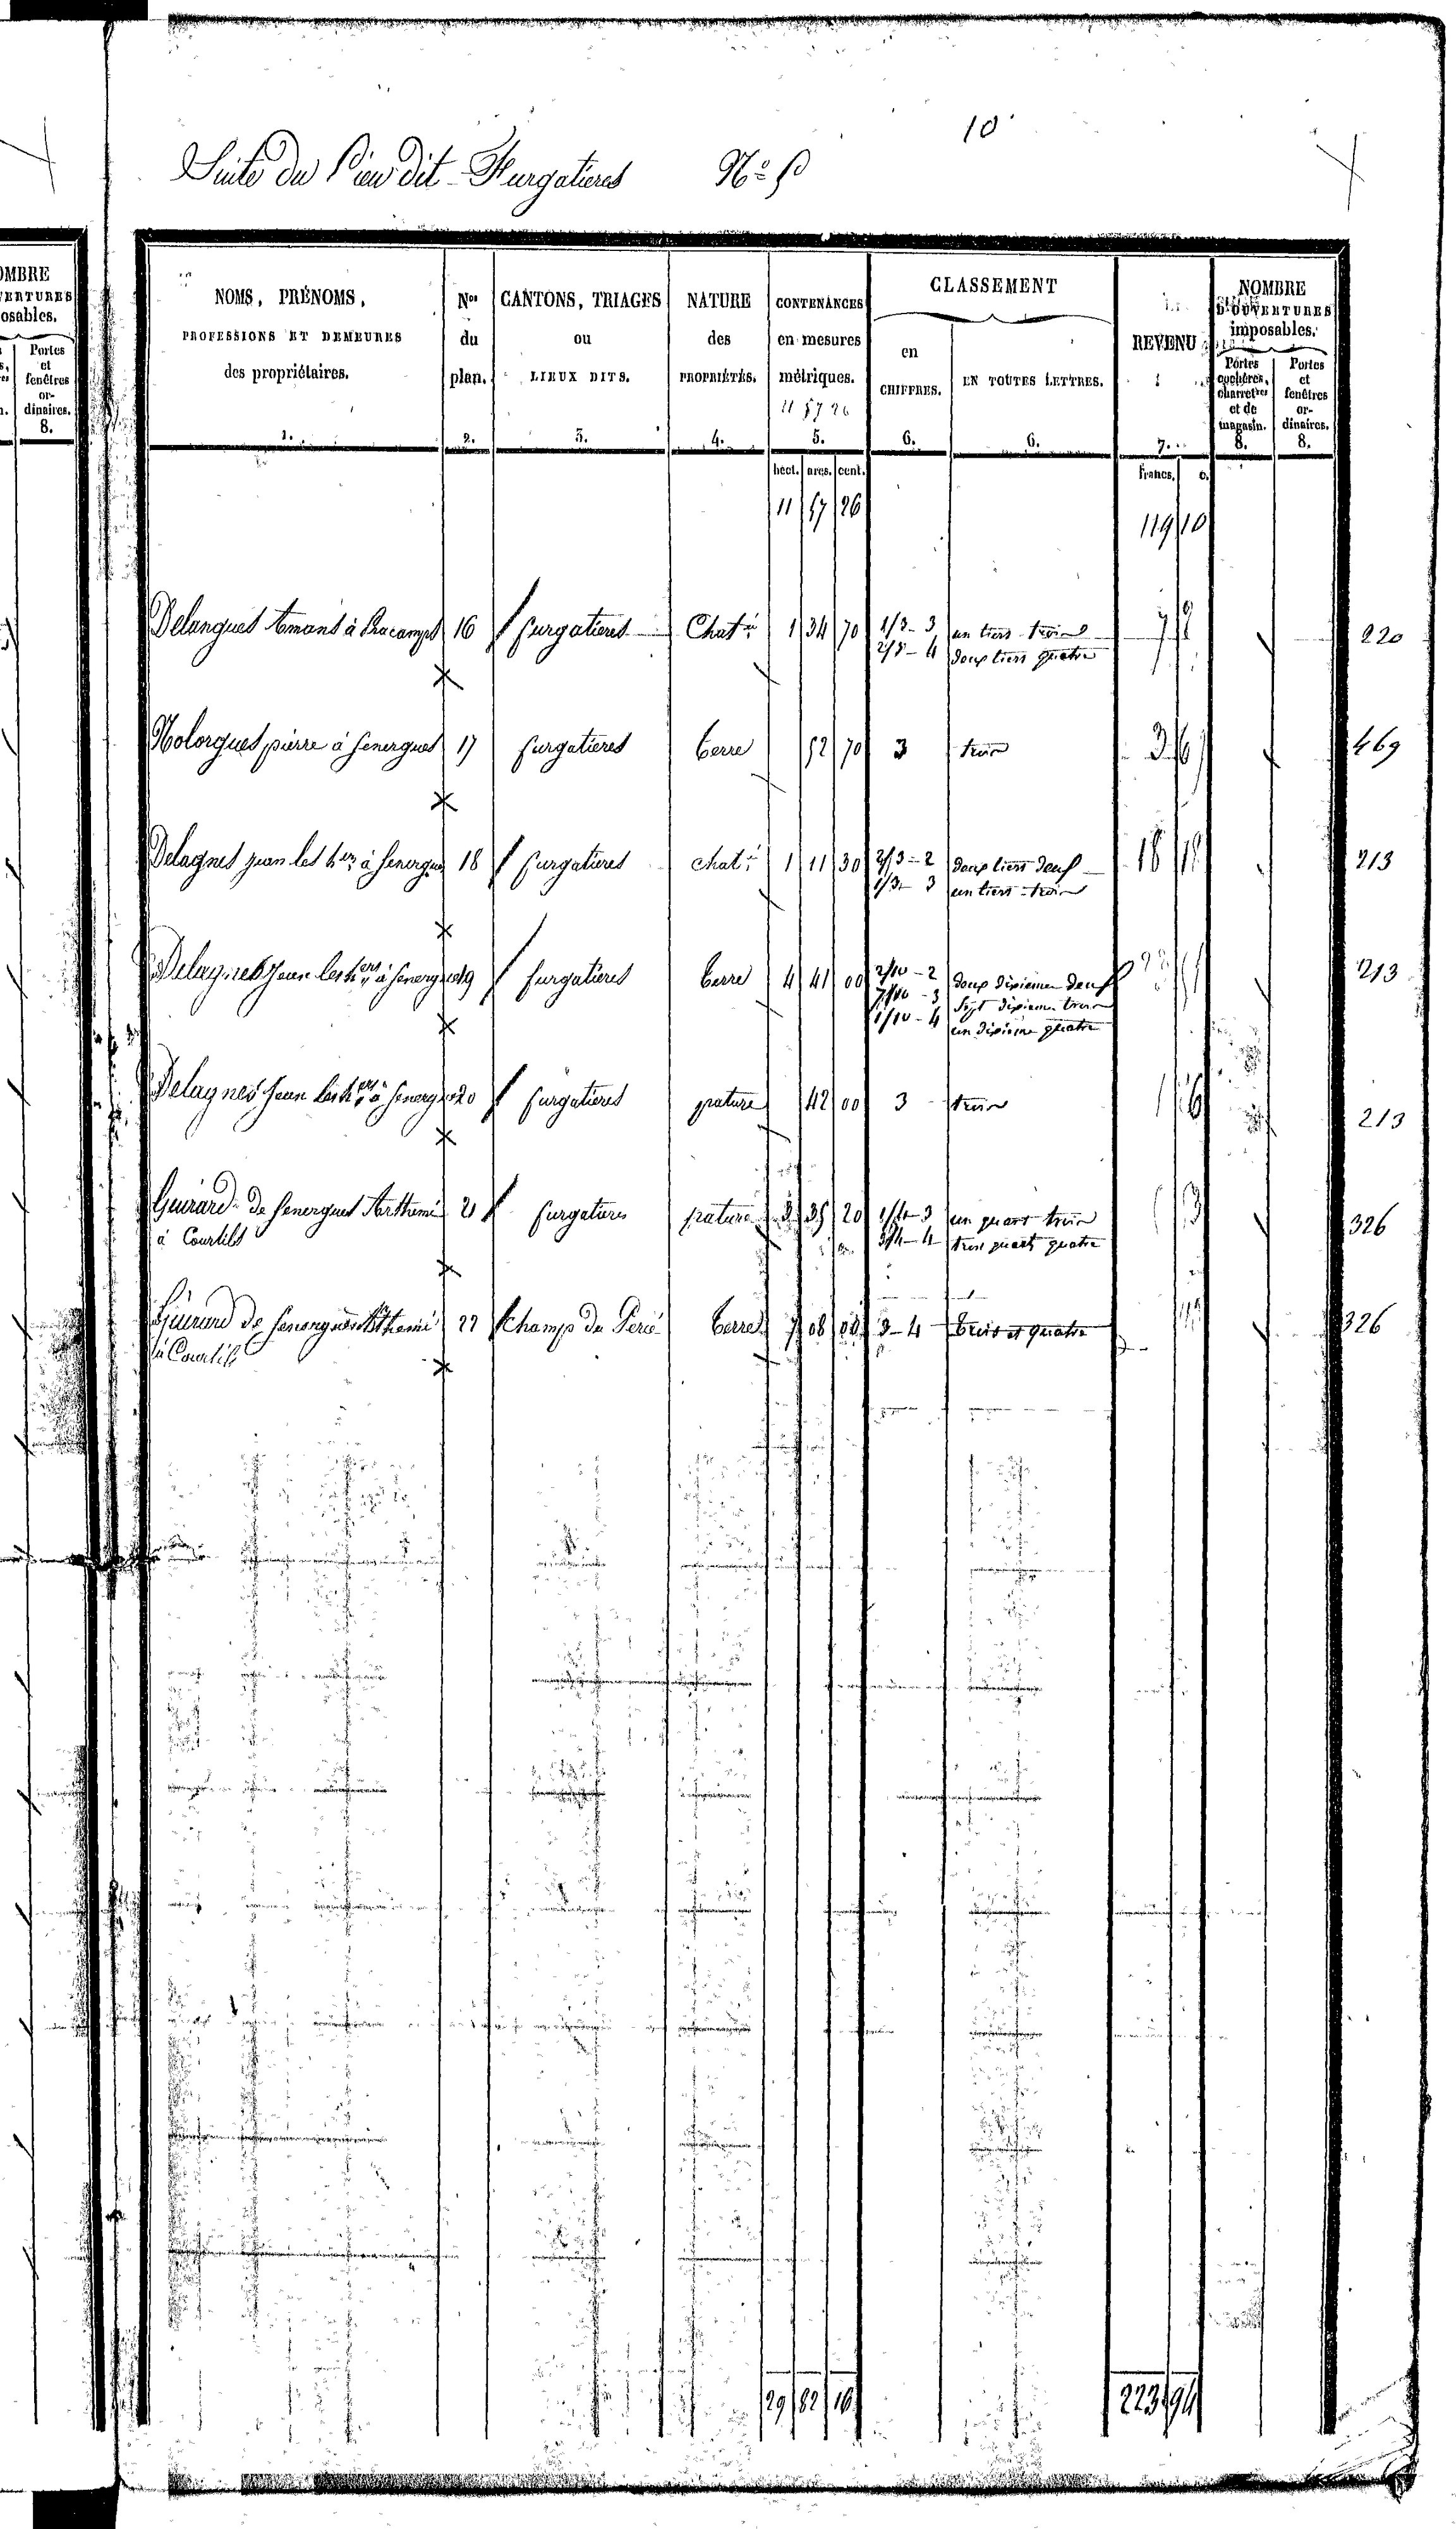 10
Suite du Lieu dit Furgatieres N° 5
OMBRE
VERTURES
osables.
Portes
et
fenêtres
or-
dinaires.
8.
NOMS, PRÉNOMS,
PROFESSIONS ET DEMEURES
des propriétaires.
1.
Nos
du
plan.
2.
CANTONS, TRIAGES
ou
LIEUX DITS.
3.
NATURE
des
PROPRIÉTÉS.
4.
CONTENANCES
en mesures
métriques.
11 57 26
5.
CLASSEMENT
en
CHIFFRES.
6.
EN TOUTES LETTRES.
6.
REVENU
7.
NOMBRE
D'OUVERTURES
imposables.
Portes
cochères,
charretres
et de
magasin.
8.
Portes
et
fenêtres
or-
dinaires.
8.
hect. ares. cent. francs. c.
11 57 26 119 10
Delangues Amans à 16 furgatieres Chatr 1 34 70 1/3-3 un tiers trois 220
2/3-4 deux tiers quatre
Molorgues pierre à Senergues 17 furgatieres terre 52 70 3 trois 3 6 469
Delagnes jean les hers à Senergues 18 furgatieres chatr 1 11 30 2/3-2 deux tiers deux 18 18 213
1/3-3 un tiers trois
Delagnes Jean les hers à Senergues 19 furgatieres terre 4 41 00 2/10-2 deux dixiemes deux 213
7/10-3 Sept dixiemes trois
1/10-4 un dixieme quatre
Delagnes Jean les hers à Senergues 20 furgatieres pature 42 00 3 trois 1 6 213
Guirard de Senergues Arthemi 21 furgatieres pature 3 35 20 1/4-3 un quart trois 326
à Courtils 3/4-4 trois quarts quatre
Guirard de Senergues Arthemi 22 Champ du terre 7 08 00 3-4 trois et quatre 326
à Courtils
29 82 16 223 94